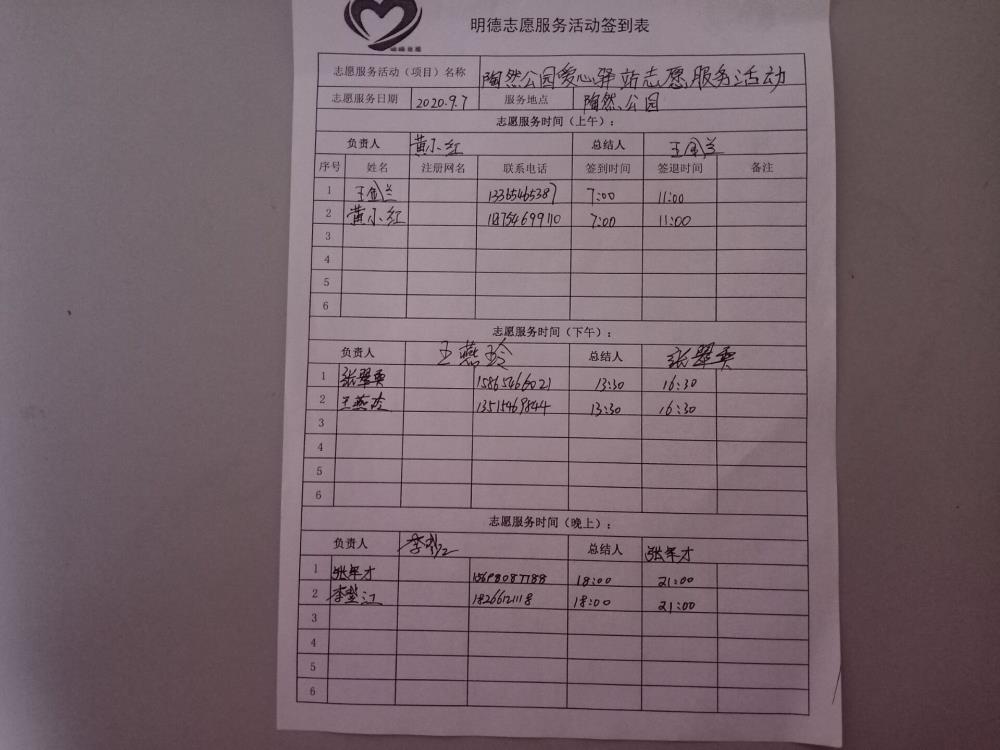 明德志愿服务活动签到表
志愿服务活动（项目）名称 陶然公园爱心驿站志愿服务活动
志愿服务日期 2020.9.7 服务地点 陶然公园
志愿服务时间（上午）：
负责人 黄小红 总结人 王金兰
序号 姓名 注册网名 联系电话 签到时间 签退时间 备注
1 王金兰 13365465387 7:00 11:00
2 黄小红 18754699110 7:00 11:00
3
4
5
6
志愿服务时间（下午）：
负责人 王燕玲 总结人 张翠
1 张翠 15865466021 13:30 16:30
2 王燕玲 13515469844 13:30 16:30
3
4
5
6
志愿服务时间（晚上）：
负责人 李 江 总结人 张军才
1 张军才 15698087788 18:00 21:00
2 李 江 18266121118 18:00 21:00
3
4
5
6